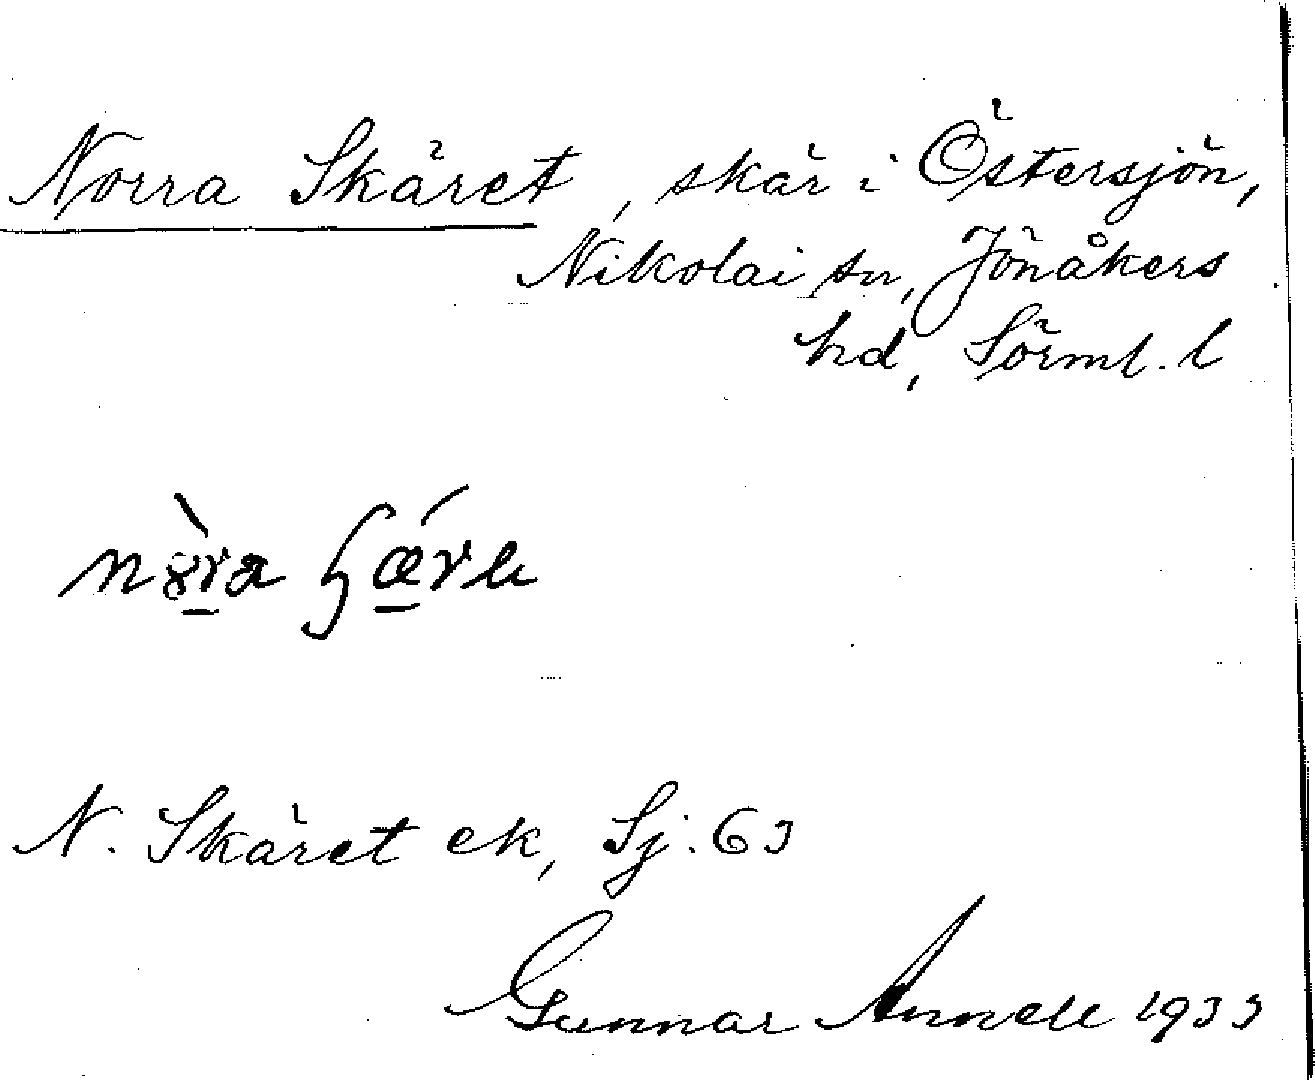 Norra Skäret, skär i Östersjön,
Nikolai sn, Jönåkers
hd, Sörml. l
N. Skäret ek, Sj. 63
Gunnar Annell 1933